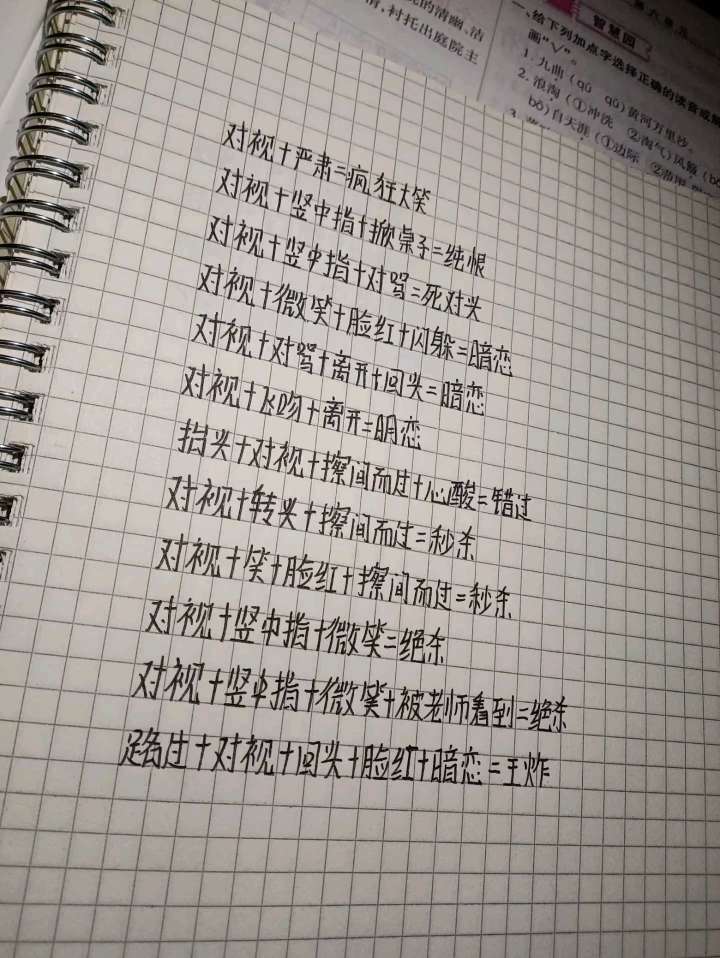 的清幽、洁
衬托出庭院主
第六单元
智慧园
一、给下列加点字选择正确的读音或
画“√”。
1. 九曲(qū qǔ)黄河万里沙。
2. 浪淘(①冲洗 ②淘气)风簸(bǒ
bò)自天涯(①边际
对视+严肃=疯狂大笑
对视+竖中指+掀桌子=纯恨
对视+竖中指+对骂=死对头
对视+微笑+脸红+闪躲=暗恋
对视+对骂+离开+回头=暗恋
对视+飞吻+离开=明恋
抬头+对视+擦间而过+心酸=错过
对视+转头+擦间而过=秒杀
对视+笑+脸红+擦间而过=秒杀
对视+竖中指+微笑=绝杀
对视+竖中指+微笑+被老师看到=绝杀
路过+对视+回头+脸红+暗恋=王炸